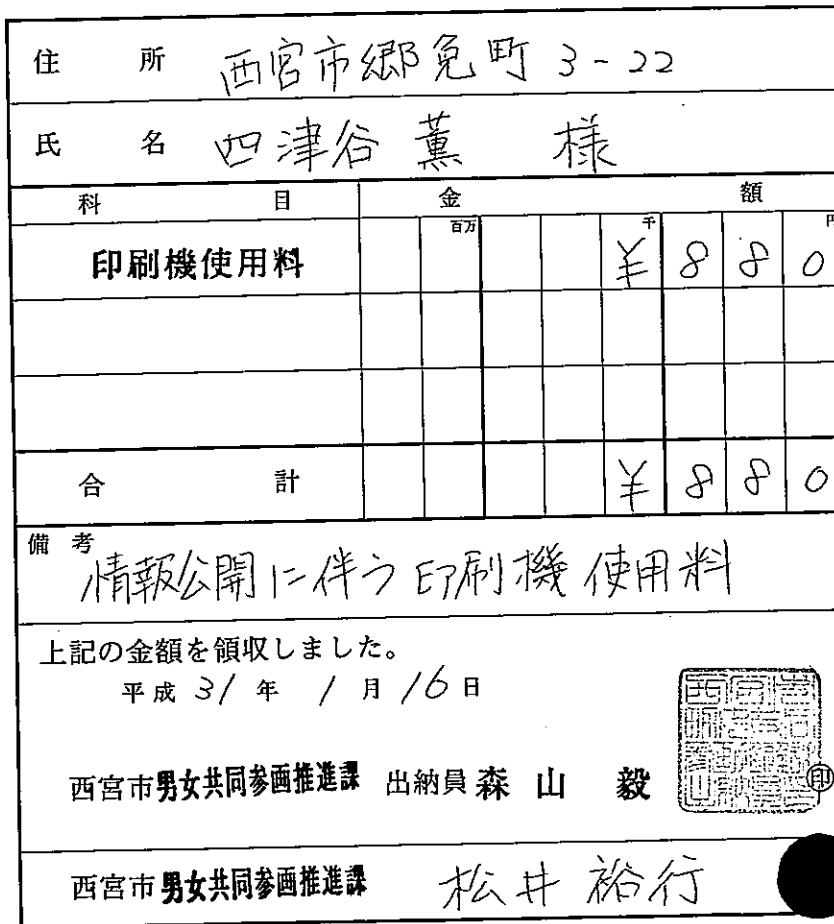 住所 西宮市郷免町 3-22
氏名 四津谷 薫 様
科目 金額
百万 千 円
印刷機使用料 ¥880
合計 ¥880
備考
情報公開に伴う印刷機使用料
上記の金額を領収しました。
平成 31 年 1 月 16 日
西宮市男女共同参画推進課 出納員 森山 毅 印
西宮市男女共同参画推進課 松井 裕行